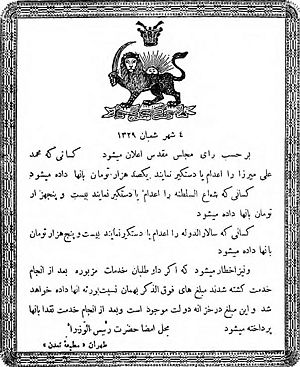 ٤ شهر شعبان ۱۳۲۹
بر حسب رای مجلس مقدس اعلان میشود کسانی که محمد
علی میرزا را اعدام یا دستگیر نمایند یکصد هزار تومان بانها داده میشود
کسانی که شعاع السلطنه را اعدام یا دستگیر نمایند بیست و پنجهزار
تومان بانها داده میشود
کسانی که سالار الدوله را اعدام یا دستگیر نمایند بیست و پنج هزار تومان
بانها داده میشود
ونیز اخطار میشود که اگر داوطلبان خدمات مزبوره بعد از انجام
خدمت کشته شدند مبلغ های فوق الذکر بهمان نسبت بورثه انها داده خواهد
شد و این مبلغ در خزانه دولت موجود است و بعد از انجام خدمت نقدا بانها
پرداخته میشود محل امضا حضرت رئیس الوزرا
طهران « مطبعهٔ تمدن »